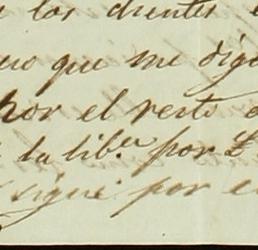 los dientes
que me dig
por el resto
la lib.ª por £
sigue por e